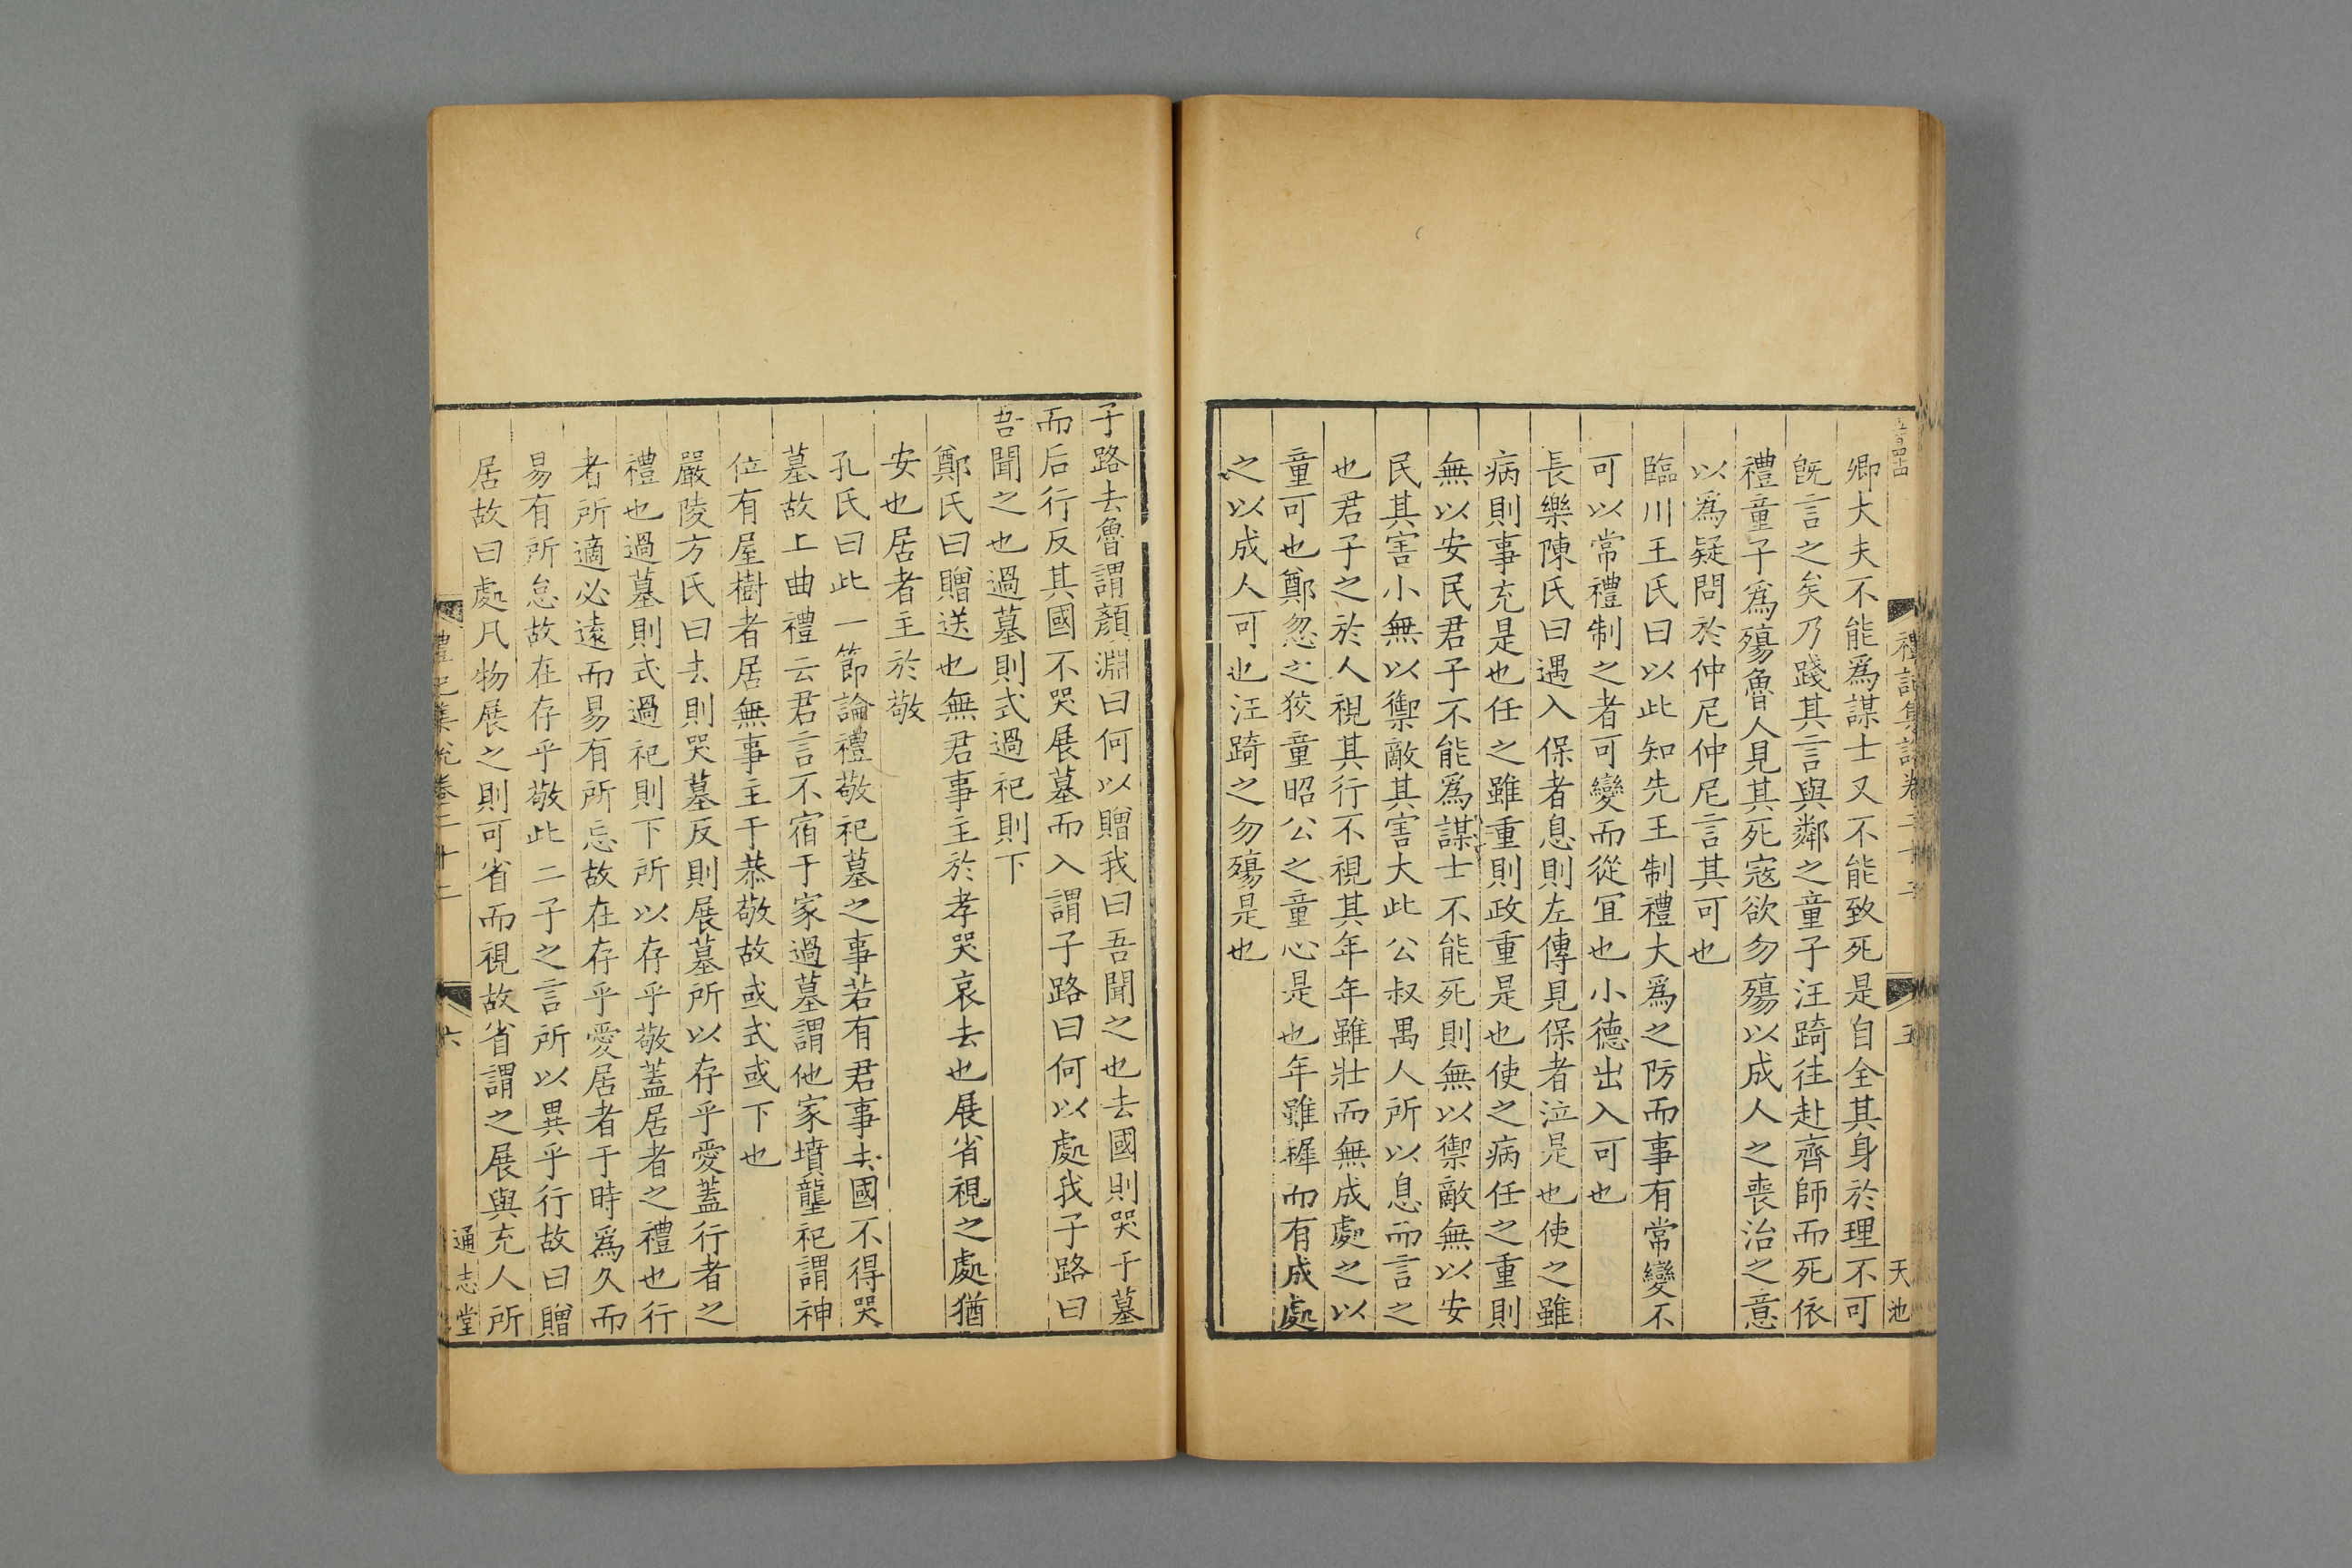 五百四十四
禮記集說卷二十二
五
天池
卿大夫不能爲謀士又不能致死是自全其身於理不可
旣言之矣乃踐其言與鄰之童子汪踦往赴齊師而死依
禮童子爲殤魯人見其死寇欲勿殤以成人之喪治之意
以爲疑問於仲尼仲尼言其可也
臨川王氏曰以此知先王制禮大爲之防而事有常變不
可以常禮制之者可變而從宜也小德出入可也
長樂陳氏曰遇入保者息則左傳見保者泣是也使之雖
病則事充是也任之雖重則政重是也使之病任之重則
無以安民君子不能爲謀士不能死則無以禦敵無以安
民其害小無以禦敵其害大此公叔禺人所以息而言之
也君子之於人視其行不視其年年雖壯而無成處之以
童可也鄭忽之狡童昭公之童心是也年雖穉而有成處
之以成人可也汪踦之勿殤是也
子路去魯謂顏淵曰何以贈我曰吾聞之也去國則哭于墓
而后行反其國不哭展墓而入謂子路曰何以處我子路曰
吾聞之也過墓則式過祀則下
鄭氏曰贈送也無君事主於孝哭哀去也展省視之處猶
安也居者主於敬
孔氏曰此一節論禮敬祀墓之事若有君事去國不得哭
墓故上曲禮云君言不宿于家過墓謂他家墳壟祀謂神
位有屋樹者居無事主于恭敬故或式或下也
嚴陵方氏曰去則哭墓反則展墓所以存乎愛蓋行者之
禮也過墓則式過祀則下所以存乎敬蓋居者之禮也行
者所適必遠而易有所忘故在存乎愛居者于時爲久而
易有所怠故在存乎敬此二子之言所以異乎行故曰贈
居故曰處凡物展之則可省而視故省謂之展與充人所
禮記集說卷二十二
六
通志堂